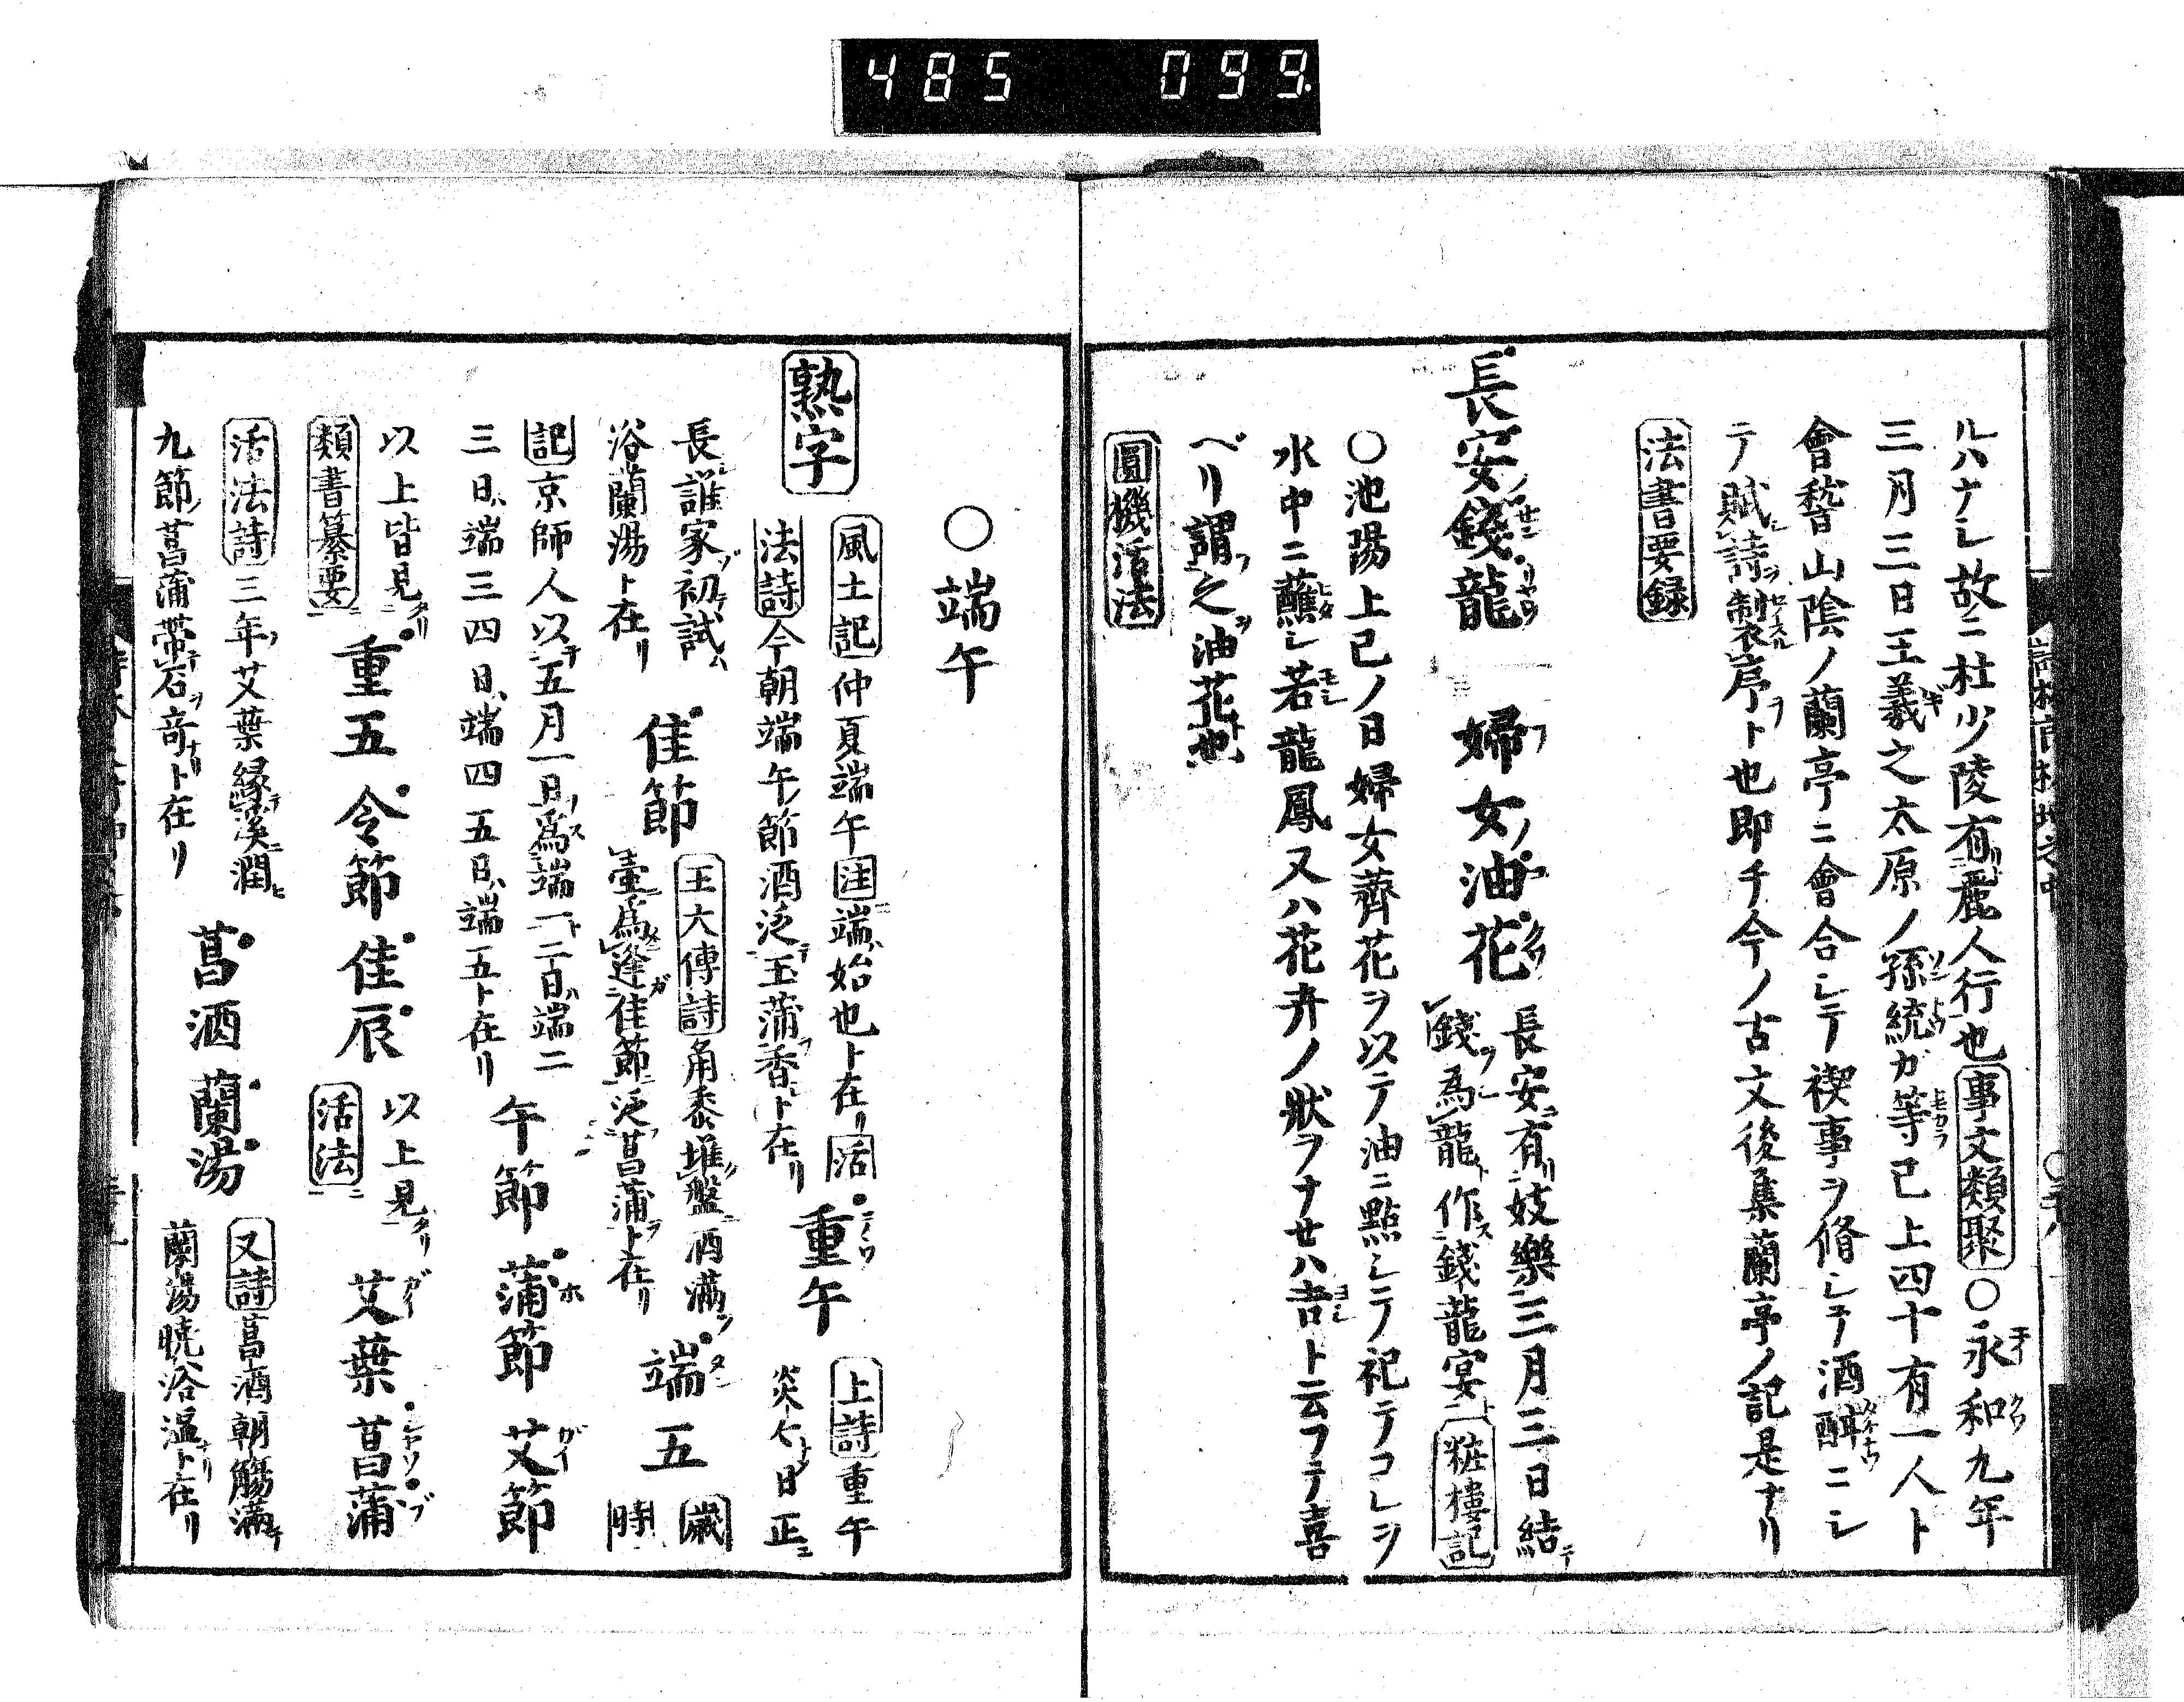 485 099
ルハナレ故ニ杜少陵有麗人行也事文類聚〇永和九年
三月三日王羲之太原ノ孫統ガ等己上四十有一人ト
會稽山陰ノ蘭亭ニ會合レテ禊事ヲ脩レテ酒酣ニレ
テ賦詩製序ト也即チ今ノ古文後集蘭亭ノ記是ナリ
法書要録
長安錢龍 婦女油花
長安有妓樂三月三日結
錢為龍作錢龍宴粧樓記
〇池陽上巳ノ日婦女薺花ヲ以テ油ニ點レテ祀テコレヲ
水中ニ蘸レ若龍鳳又ハ花卉ノ狀ヲナセハ吉ト云フテ喜
ベリ謂之油花也
圓機活法
〇端午
熟字
風土記仲夏端午注端始也ト在リ活
法詩今朝端午節酒泛玉蒲香ト在リ
重午
上詩重午
炎〻日正
長誰家初試
浴蘭湯ト在リ
佳節
王大傳詩角黍堆盤酒満
壷爲逢佳節泛菖蒲ト在リ
端五
歳
時
記京師人以五月一日爲端一二日端二
三日端三四日端四五日端五ト在リ
午節 蒲節 艾節
以上皆見
類書纂要
重五 令節 佳辰
以上見
活法
艾葉 菖蒲
活法詩三年艾葉縁溪潤
九節菖蒲帶石奇ト在リ
菖酒 蘭湯
又詩菖酒朝觴満
蘭湯曉浴温ト在リ